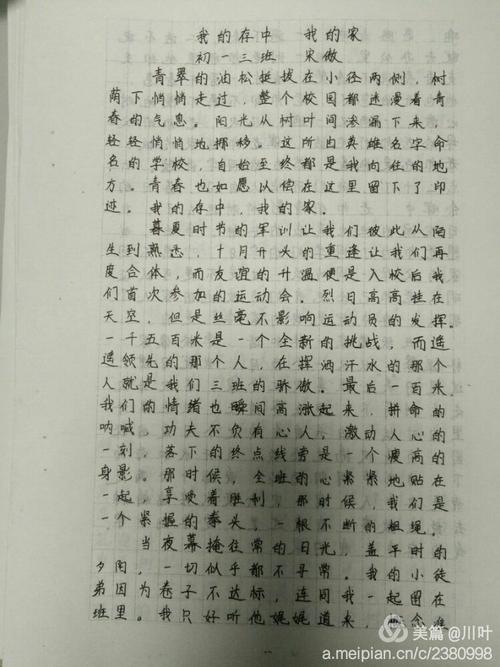 我的存中 我的家
初一三班 宋傲
青翠的油松挺拔在小径两侧，树
荫下悄悄走过，整个校园都迷漫着青
春的气息。阳光从树叶间渗漏下来，
轻轻悄悄地挪移。这所由英雄名字命
名的学校，自始至终都是我向往的地
方。青春也如愿以偿在这里留下了印
迹。我的存中，我的家。
暮夏时节的军训让我们彼此从陌
生到熟悉，十月开头的重逢让我们再
度合体，而友谊的升温便是入校后我
们首次参加的运动会。烈日高高挂在
天空，但是丝毫不影响运动员的发挥。
一千五百米是一个全新的挑战，而遥
遥领先的那个人，在挥洒汗水的那个
人就是我们三班的骄傲。最后一百米，
我们的情绪也瞬间高涨起来，拼命的
呐喊，功夫不负有心人，激动人心的
一刻，落下的终点线旁是一个瘦高的
身影。那时候，全班的心紧紧地贴在
一起，享受着胜利，那时候，我们是
一个紧握的拳头，一根不断的粗绳。
当夜幕掩住常的日光，盖平时的
夕阳，一切似乎都不寻常。我的小徒
弟因为卷子不达标，连同我一起困在
班里。我只好听他娓娓道来，念难
美篇 @川叶
a.meipian.cn/c/2380998